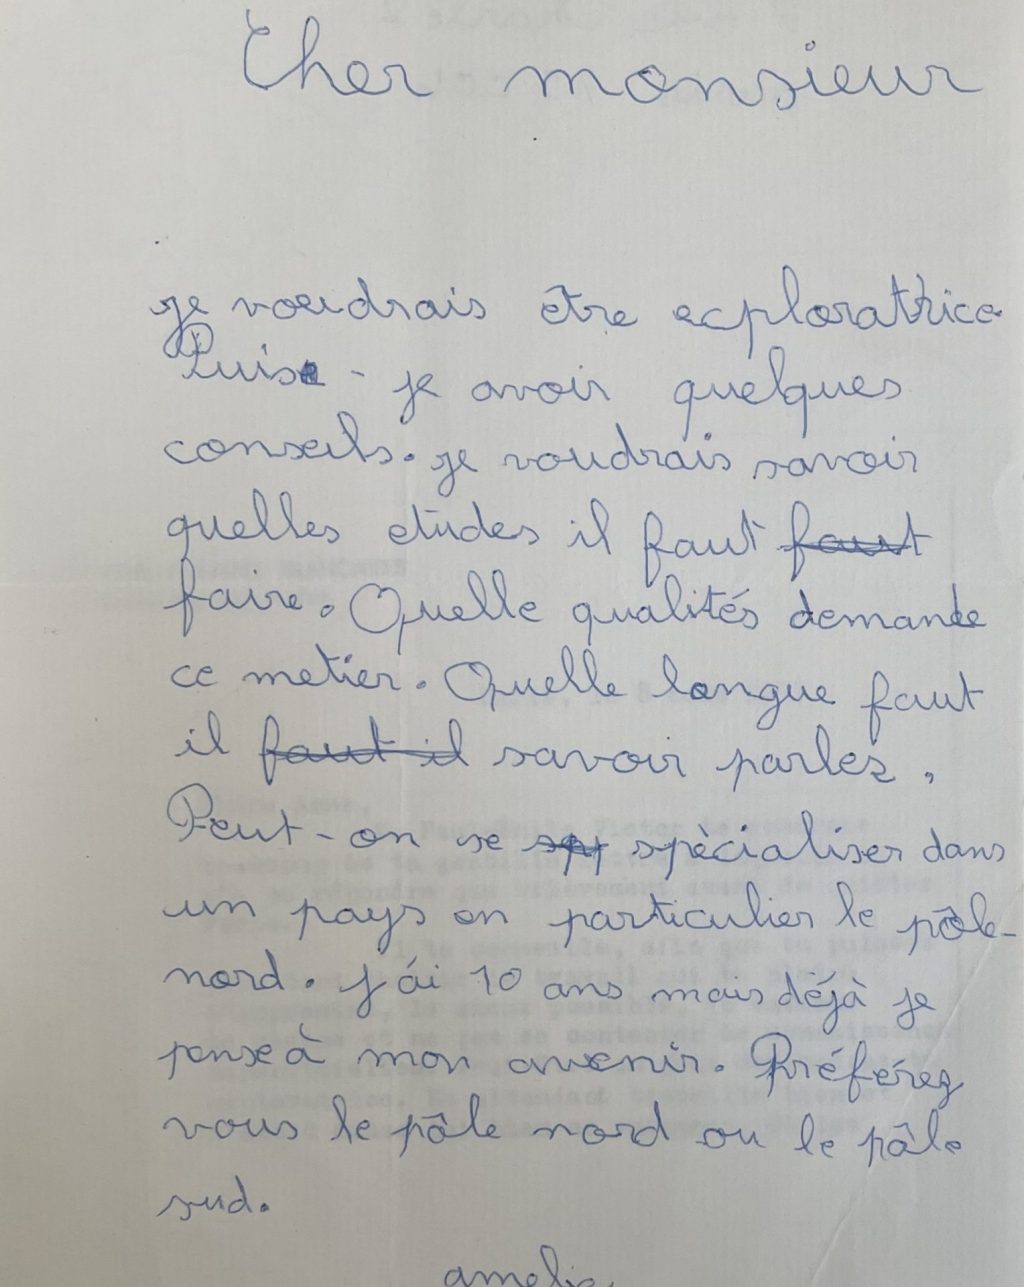 Cher monsieur
je voudrais être exploratrice
Puis - je avoir quelques
conseils. je voudrais savoir
quelles etudes il faut faut
faire. Quelle qualités demande
ce metier. Quelle langue faut
il faut il savoir parlez.
Peut-on se spècialiser dans
un pays en particulier le pôle-
nord. j'ai 10 ans mais déjà je
pense à mon avenir. Préférez
vous le pôle nord ou le pôle
sud.
amelie